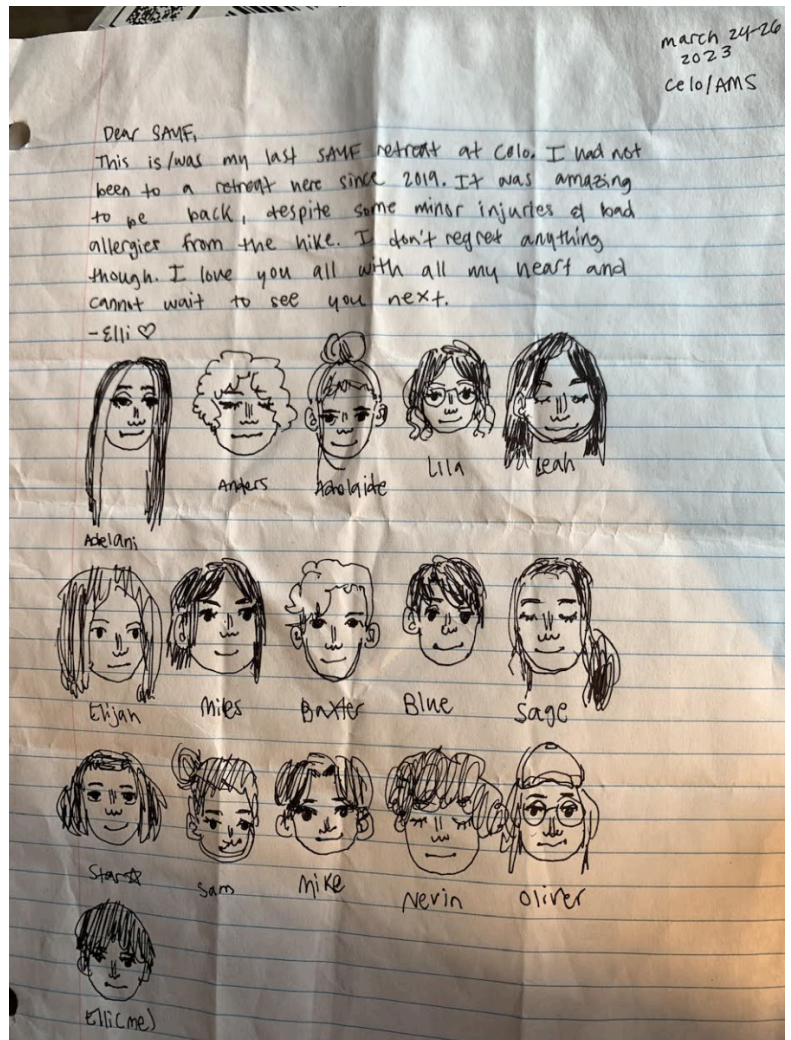 march 24-26
2023
Celo/AMS
Dear SAYF,
This is/was my last SAYF retreat at Celo. I had not
been to a retreat here since 2019. It was amazing
to be back, despite some minor injuries & bad
allergies from the hike. I don't regret anything
though. I love you all with all my heart and
cannot wait to see you next.
-Elli ♡
Anders Adelaide Lila Leah
Adelani
Elijah Miles Baxter Blue Sage
Star☆ Sam Mike Nevin Oliver
Elli(me)